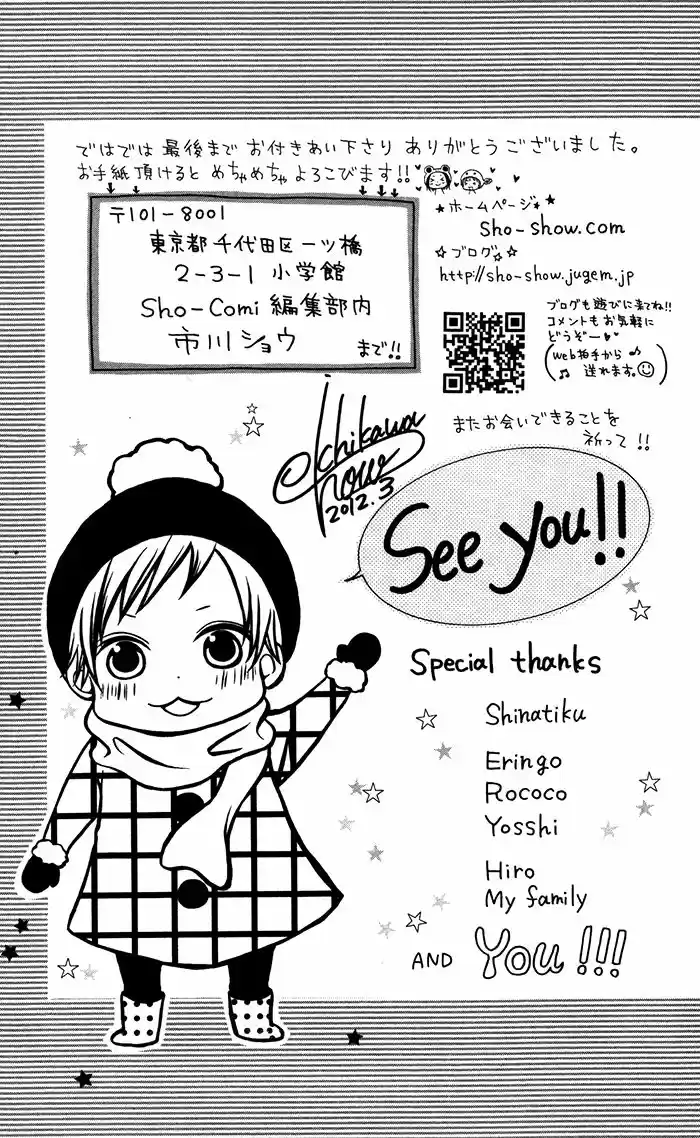 ではでは 最後まで お付きあい下さり ありがとうございました。
お手紙頂けると めちゃめちゃ よろこびます!!
〒101-8001
東京都千代田区一ツ橋
2-3-1 小学館
Sho-Comi 編集部内
市川ショウ
まで!!
ホームページ
Sho-show.com
ブログ
http://sho-show.jugem.jp
ブログも遊びに来てね!!
コメントもお気軽に
どうぞー
(web拍手から
送れます。)
またお会いできることを
祈って!!
Ichikawa
Show
2012.3
See you!!
Special thanks
Shinatiku
Eringo
Rococo
Yosshi
Hiro
My family
AND You!!!